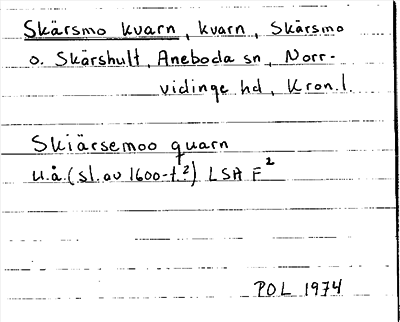 Skärsmo kvarn, kvarn, Skärsmo
o. Skärshult, Aneboda sn, Norr-
vidinge hd, Kron.l.
Skiärsemoo quarn
u.å. (sl. av 1600-t.?) LSA F²
POL 1974